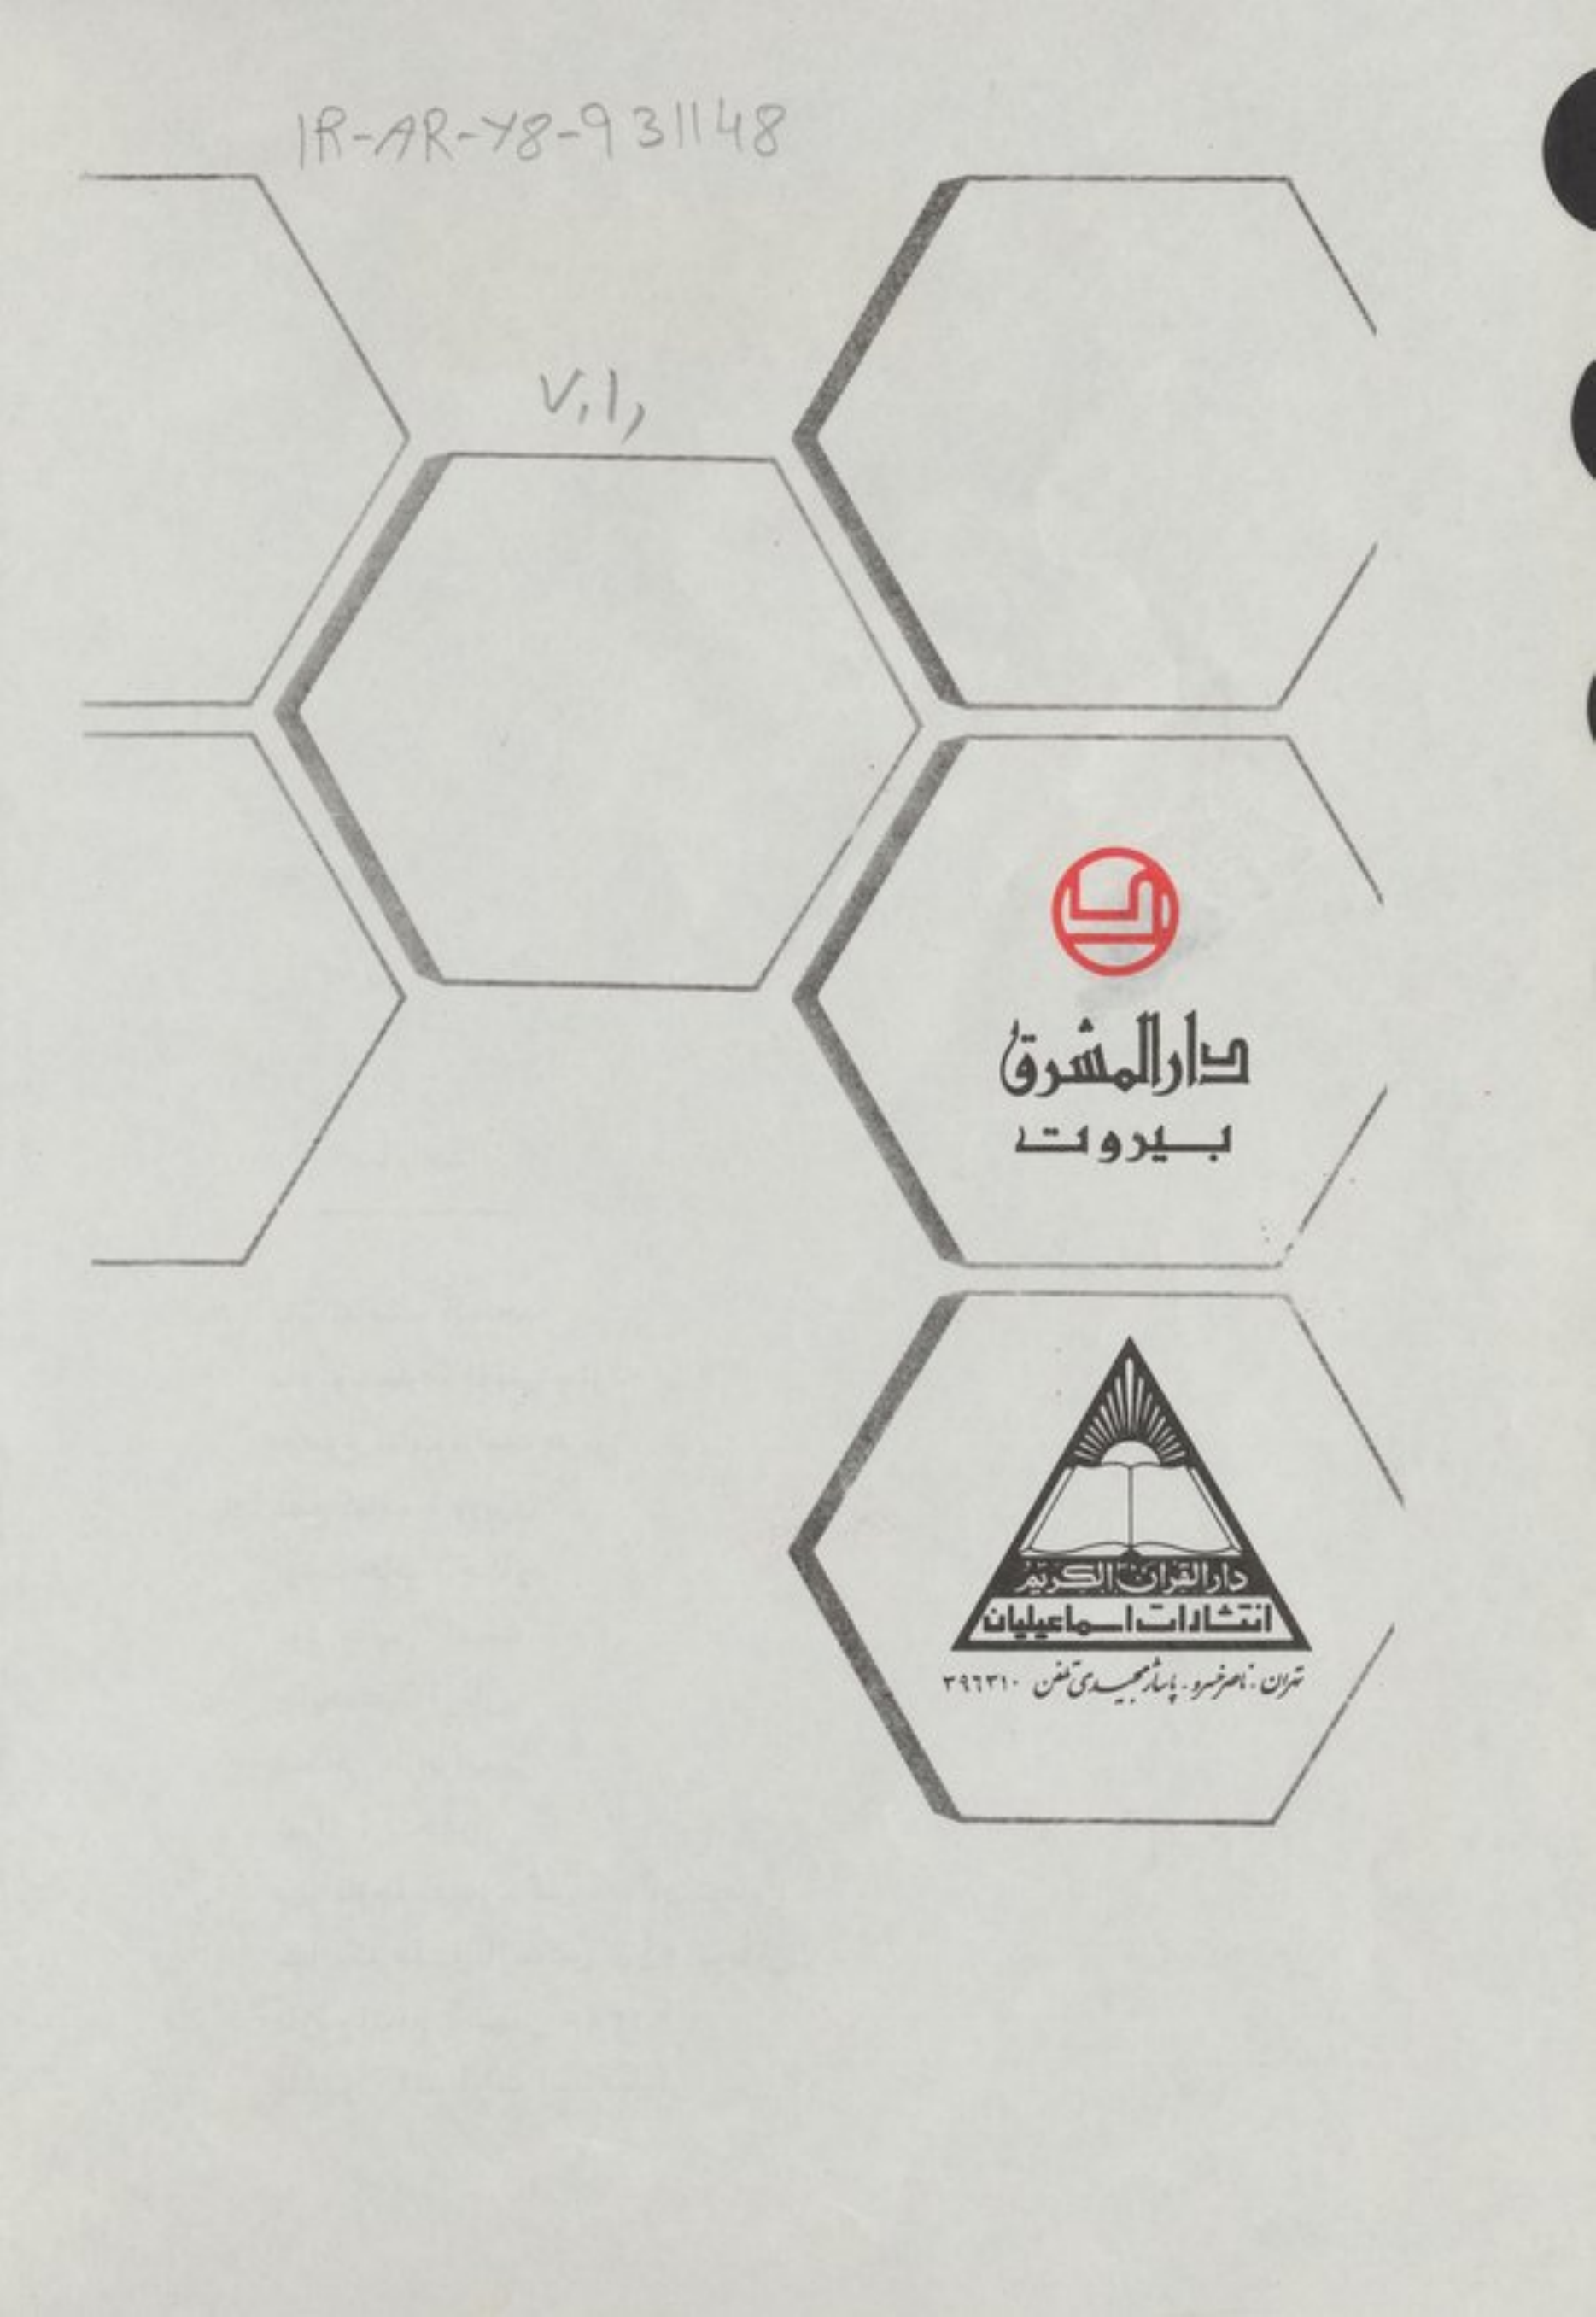 IR-AR-Y8-931148
V.1,
دار المشرق
بيروت
دار القرآن الكريم
انتشارات اسماعيليان
تهران . ناصر خسرو . پاساژ مجیدی تلفن ٣٩٦٣١٠